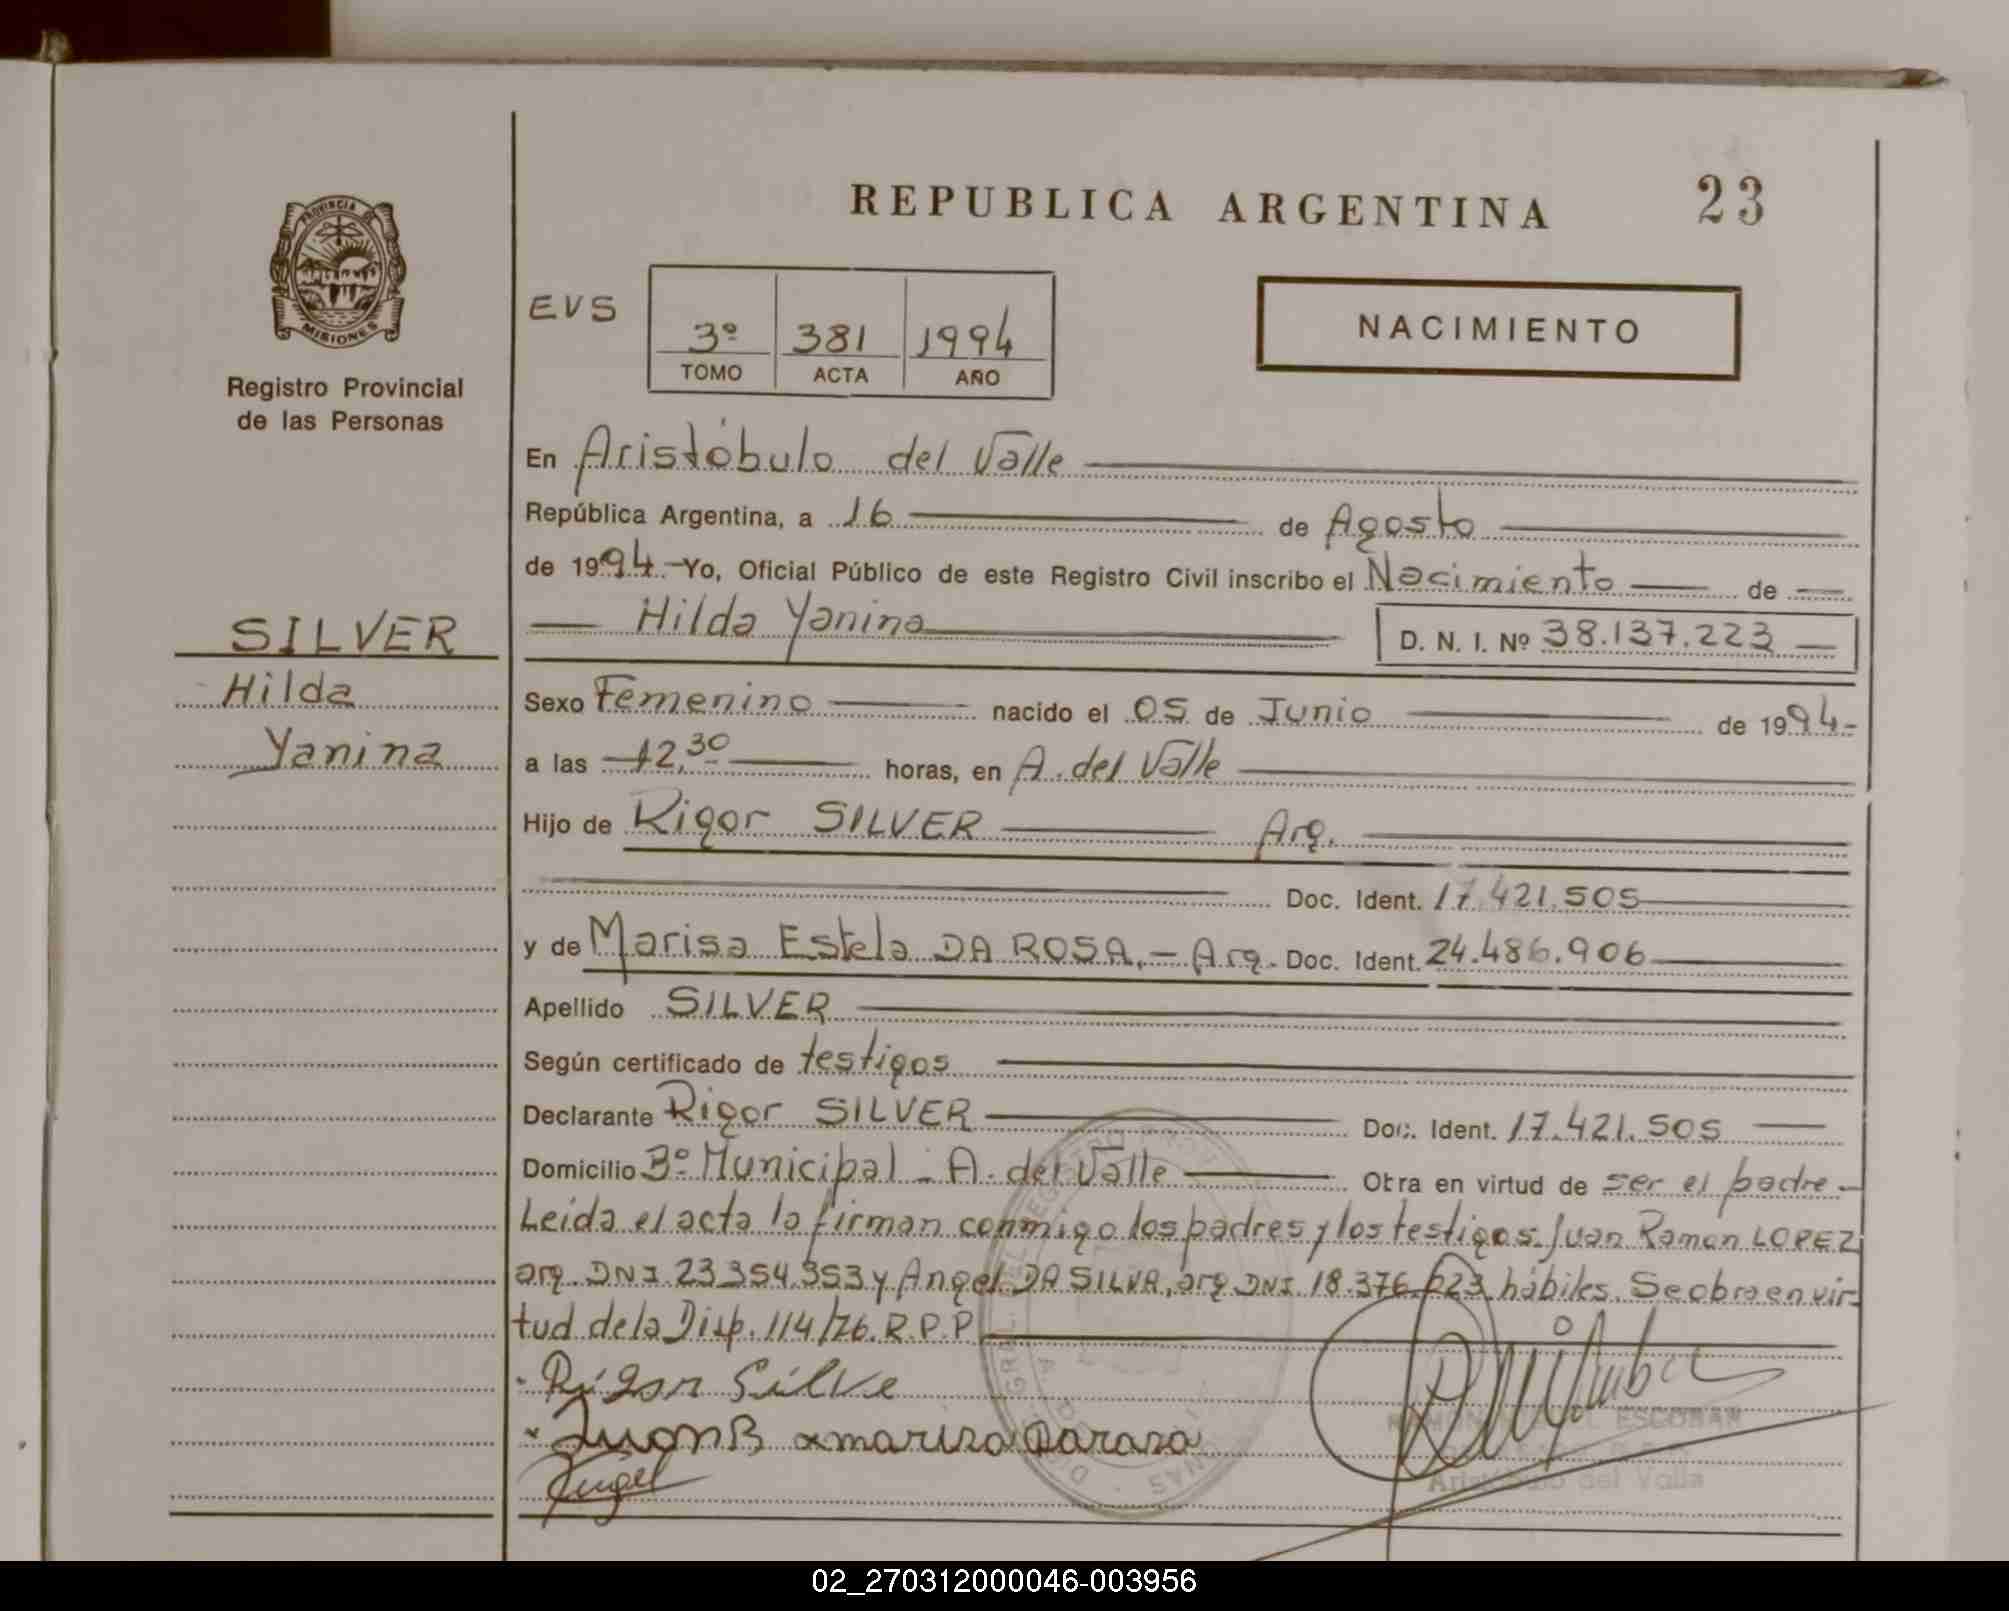 PROVINCIA DE
MISIONES
Registro Provincial
de las Personas
SILVER
Hilda
Yanina
REPUBLICA ARGENTINA 23
EVS
3º 381 1994
TOMO ACTA AÑO
NACIMIENTO
En Aristóbulo del Valle
República Argentina, a 16 de Agosto
de 1994.-Yo, Oficial Público de este Registro Civil inscribo el Nacimiento de
Hilda Yanina D. N. I. Nº 38.137.223
Sexo Femenino nacido el 05 de Junio de 1994.-
a las 12,30 horas, en A. del Valle
Hijo de Rigor SILVER Arg.
Doc. Ident. 17.421.505
y de Marisa Estela DA ROSA.- Arg. Doc. Ident. 24.486.906
Apellido SILVER
Según certificado de testigos
Declarante Rigor SILVER Doc. Ident. 17.421.505
Domicilio Bº Municipal - A. del Valle Obra en virtud de ser el padre.-
Leída el acta la firman conmigo los padres y los testigos: Juan Ramon LOPEZ
arg. DNI 23.354.353 y Angel DA SILVA, arg. DNI. 18.376.223 hábiles. Se obra en vir-
tud de la Disp. 114/76. R.P.P.
Rigor Silve
Juan B marisa Darasa
Angel
RAMON ESCOBAR
Aristóbulo del Valle
02_270312000046-003956